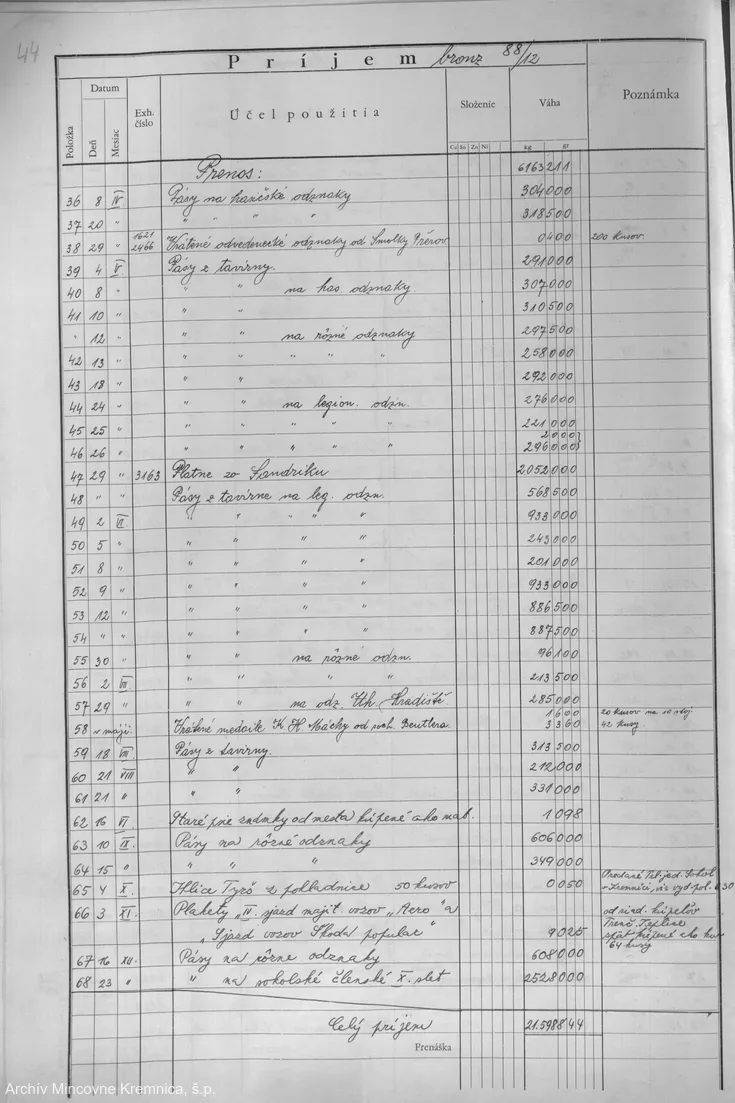 44
Príjem bronz 88/12
Položka Datum Deň Mesiac Exh. číslo Účel použitia Složenie Cu Sn Zn Ni Váha kg gr Poznámka
Prenos: 6163211
36 8 IV Pásy na hasičské odznaky 304000
37 20 " " " " " 318500
38 29 " 1621 2466 Vrátené odvedenecké odznaky od Smolky Přerov 0400 200 kusov
39 4 V Pásy z tavirny. 291000
40 8 " " " na has. odznaky 307000
41 10 " " " 310500
" 12 " " " na rôzné odznaky 297500
42 13 " " " " " " 258000
43 18 " " " 292000
44 24 " " " na legion. odzn. 276000
45 25 " " " " " " 221000
2000}
46 26 " " " " " " 296000}
47 29 " 3163 Platne zo Sandriku 2052000
48 " " Pásy z tavirne na leg. odzn. 568500
49 2 VI " " " " 933000
50 5 " " " " " 243000
51 8 " " " " " 201000
52 9 " " " " " 933000
53 12 " " " " " 886500
54 " " " " " " 887500
55 30 " " " na rôzné odzn. 96100
56 2 VII " " " " " 213500
57 29 " " " na odz. Uh. Hradiště 285000
1600 20 kusov na
58 v máji Vrátené medaile K. H. Máchy od Beutlera 3360 42 kusy
59 18 VII Pásy z tavirny. 313500
60 21 VIII " " 212000
61 21 " " " 331000
62 16 VI Staré známky od mesta kúpené ako mat. 1098
63 10 IX Pásy na rôzné odznaky 606000
64 15 " " " " 349000
65 4 X. Tyrš z pokladnice 50 kusov 0050 Predané Tel. jed. Sokol v Kremnici, viď vyd. pol. 630
66 3 XI. Plakety „IV. sjazd majit. vozov „Aero" a
„Sjazd vozov Škoda popular" 9025 od riad. kúpelov Trenč. Teplice späť kúpené ako kov 64 kusy
67 16 XII. Pásy na rôzne odznaky 608000
68 23 " " na sokolské členské X. slet 2528000
Celý príjem 21.598844
Prenáška
Archív Mincovne Kremnica, š.p.